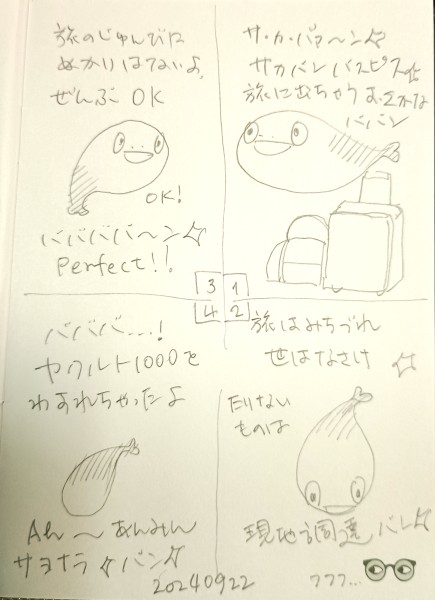 サ・カ・バァ〜ン☆
サカバンバスピス☆
旅に出ちゃうおさかな
ババン
旅はみちづれ
世はなさけ☆
たりない
ものは
現地調達バン☆
フフフ...
旅のじゅんびに
ぬかりはないよ、
ぜんぶ OK
OK!
ババババ〜ン☆
Perfect!!
3 1
4 2
バババ…!
ヤクルト1000を
わすれちゃったよ
Ah〜あんみん
サヨナラ☆バン☆
20240922